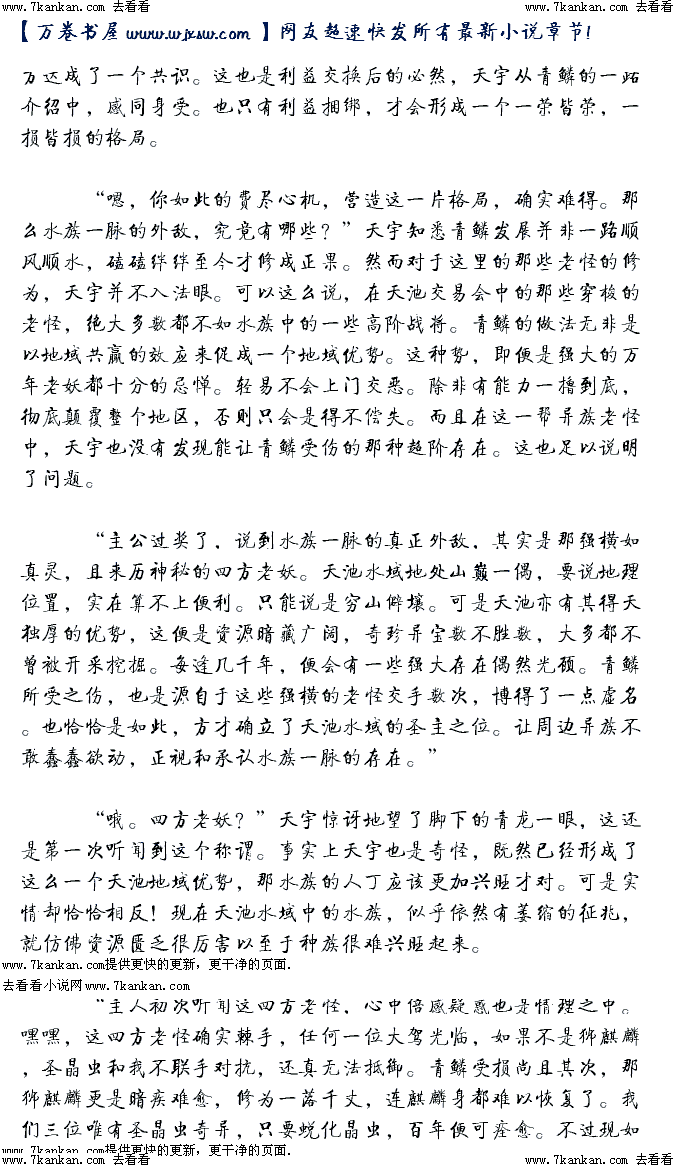 www.7kankan.com 去看看 www.7kankan.com 去看看
【万卷书屋 www.wjxsw.com 】网友超速快发所有最新小说章节!
方达成了一个共识。这也是利益交换后的必然,天宇从青鳞的一路
介绍中,感同身受。也只有利益捆绑,才会形成一个一荣皆荣,一
损皆损的格局。
“嗯,你如此的费尽心机,营造这一片格局,确实难得。那
么水族一脉的外敌,究竟有哪些?”天宇知悉青鳞发展并非一路顺
风顺水,磕磕绊绊至今才修成正果。然而对于这里的那些老怪的修
为,天宇并不入法眼。可以这么说,在天池交易会中的那些穿梭的
老怪,绝大多数都不如水族中的一些高阶战将。青鳞的做法无非是
以地域共赢的效应来促成一个地域优势。这种势,即便是强大的万
年老妖都十分的忌惮。轻易不会上门交恶。除非有能力一撸到底,
彻底颠覆整个地区,否则只会是得不偿失。而且在这一帮异族老怪
中,天宇也没有发现能让青鳞受伤的那种超阶存在。这也足以说明
了问题。
“主公过奖了,说到水族一脉的真正外敌,其实是那强横如
真灵,且来历神秘的四方老妖。天池水域地处山巅一偶,要说地理
位置,实在算不上便利。只能说是穷山僻壤。可是天池亦有其得天
独厚的优势,这便是资源暗藏广阔,奇珍异宝数不胜数,大多都不
曾被开采挖掘。每逢几千年,便会有一些强大存在偶然光顾。青鳞
所受之伤,也是源自于这些强横的老怪交手数次,博得了一点虚名
。也恰恰是如此,方才确立了天池水域的圣主之位。让周边异族不
敢蠢蠢欲动,正视和承认水族一脉的存在。”
“哦。四方老妖?”天宇惊讶地望了脚下的青龙一眼,这还
是第一次听闻到这个称谓。事实上天宇也是奇怪,既然已经形成了
这么一个天池地域优势,那水族的人丁应该更加兴旺才对。可是实
情却恰恰相反!现在天池水域中的水族,似乎依然有萎缩的征兆,
就仿佛资源匮乏很厉害以至于种族很难兴旺起来。
www.7kankan.com提供更快的更新,更干净的页面.
去看看小说网www.7kankan.com
“主人初次听闻这四方老怪,心中倍感疑惑也是情理之中。
嘿嘿,这四方老怪确实棘手,任何一位大驾光临,如果不是狮麒麟
,圣晶虫和我不联手对抗,还真无法抵御。青鳞受损尚且其次,那
狮麒麟更是暗疾难愈,修为一落千丈,连麒麟身都难以恢复了。我
们三位唯有圣晶虫奇异,只要蜕化晶虫,百年便可痊愈。不过现如
www.7kankan.com提供更快的更新,更干净的页面.
www.7kankan.com 去看看 www.7kankan.com 去看看